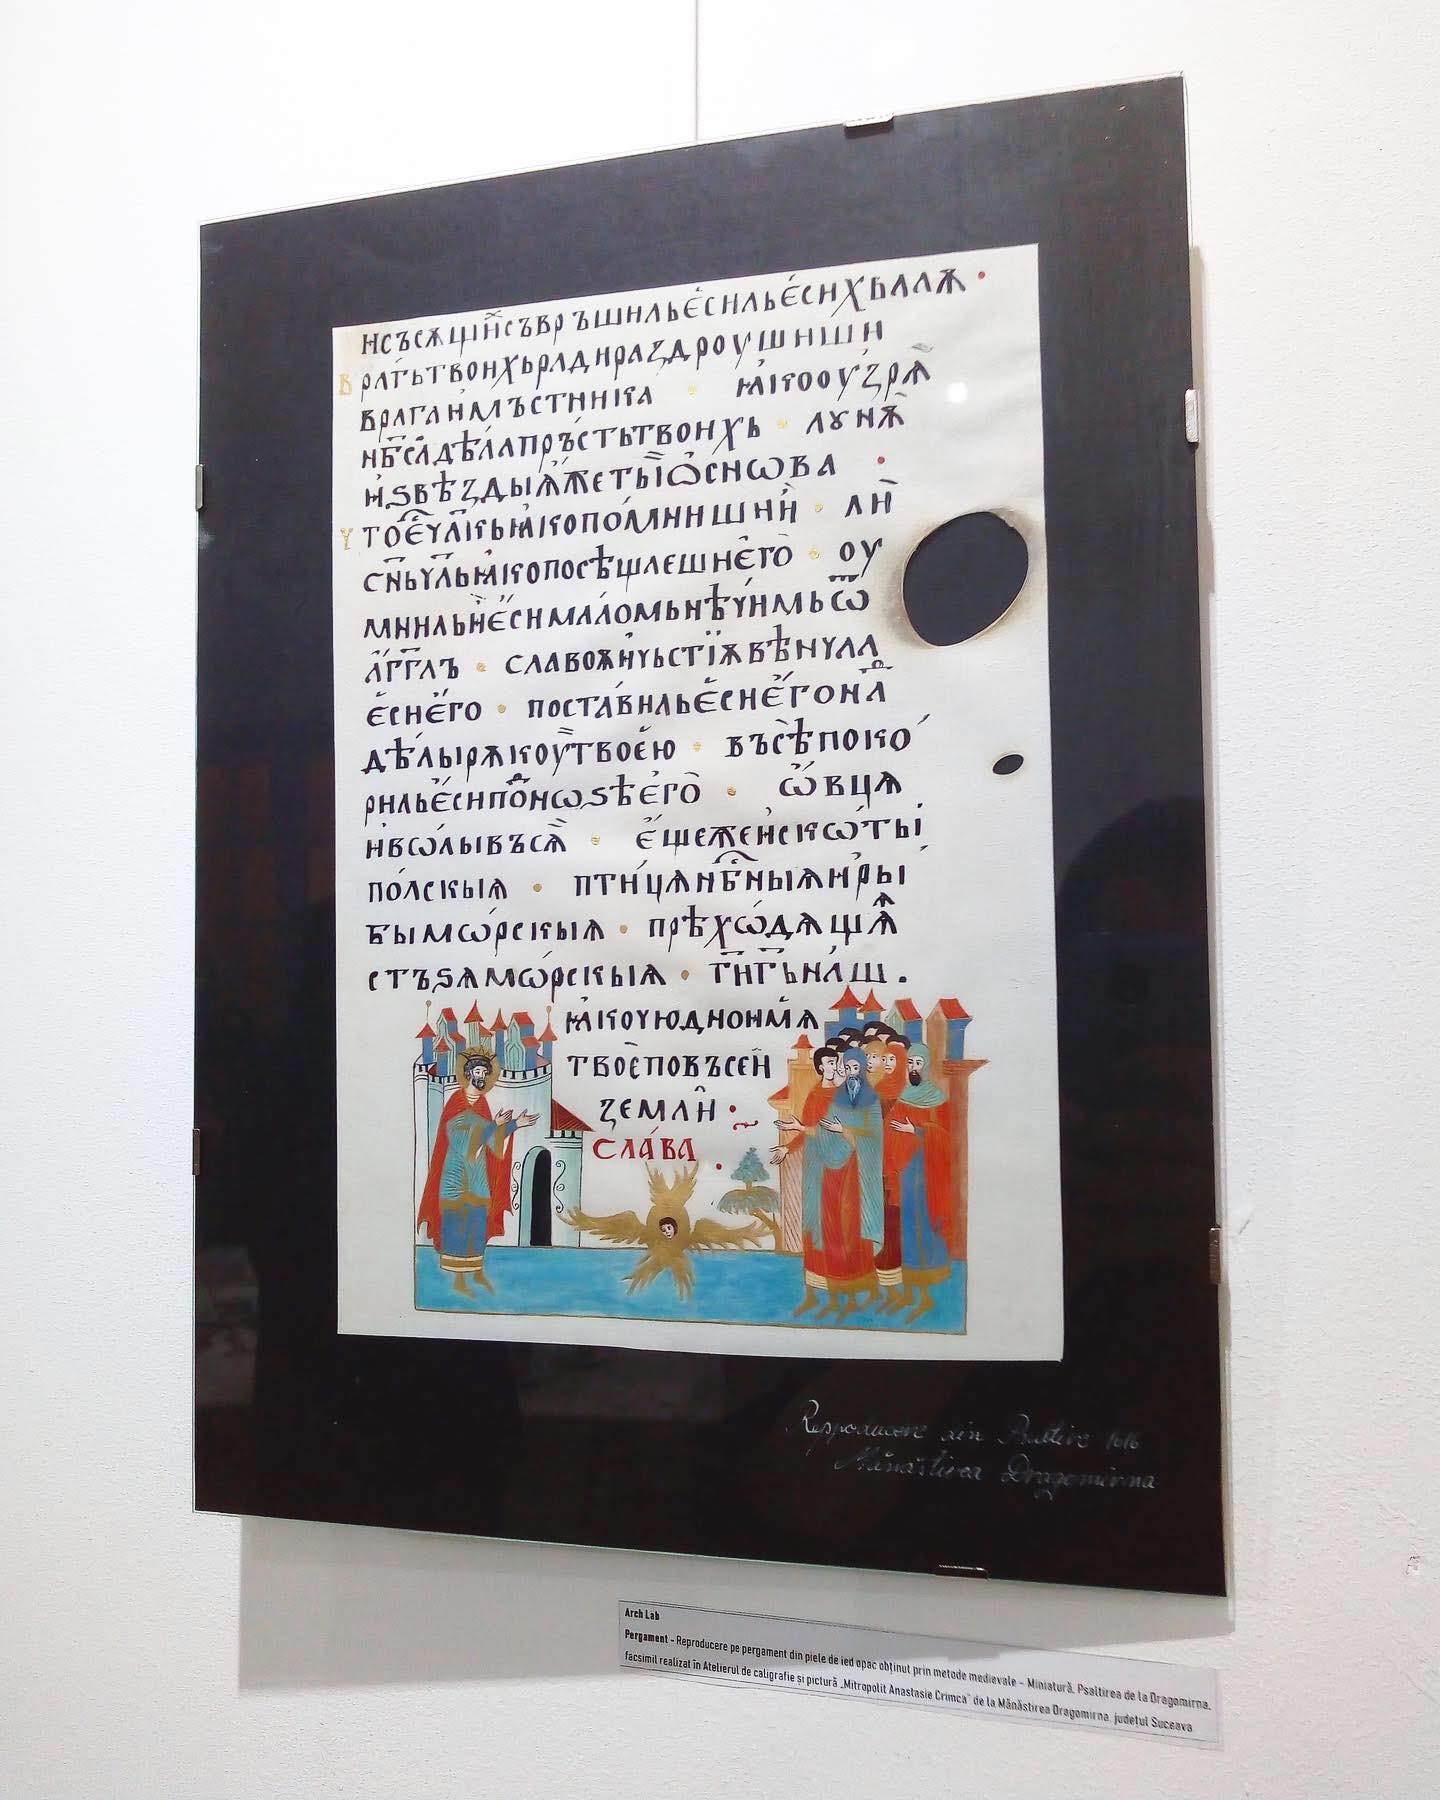 и съсѫщи́и съвръши́лъ є́си лъ є́си хвалѫ •
В ра́гъ твои́хь ра́ди разⷣроушиши
врага и́ мъстника • ꙗ́ко оузрѧ̀
нб҃са дѣ́ла пръ́стъ твои́хь • лꙋнѫ̀
и́ ѕвѣзды ꙗ́же ты̀ ѡ҆снѡва •
Ч то є҆́ чл҃къ ꙗ́ко по́мниши и̑ • ли̑
сн҃ь чл҃ь ꙗ́ко посѣщаеши є́го̀ • оу
мнилъ и҆̀ є҆́си ма́ломь нѣчи́мь ѿ
а́гг҃лъ • славоѫ и҆ чьстїѫ вѣнчал
є҆́си є҆́го • поста́вилъ є҆́си є҆́го на́ⷣ
дѣ́лы рѫкоу̀ твоє́ю • въсѣ̀ поко́
рилъ є҆́си поⷣ но́ѕѣ є́го̀ • ѡ҆́вцѧ
и҆ вѡлы въсѧ̀ • є҆́ще же и҆ скѡ́ты
по́лскыѧ • пти́цѧ нб҃ныѧ и҆ ры́
бы мѡ́рскыѧ • прѣхѡ́дѧщѧѧ
стъѕѧ мѡ́рскыѧ • г҃и г҃ь на́ш.
ꙗ́ко чюдно и́мѧ
твоє̀ по въсе́и
земли̑ •
сла́ва .
Reproducere din Psaltire 1616
Mănăstirea Dragomirna
Arch Lab
Pergament - Reproducere pe pergament din piele de ied opac obținut prin metode medievale - Miniatură, Psaltirea de la Dragomirna,
facsimil realizat în Atelierul de caligrafie și pictură „Mitropolit Anastasie Crimca" de la Mănăstirea Dragomirna, județul Suceava